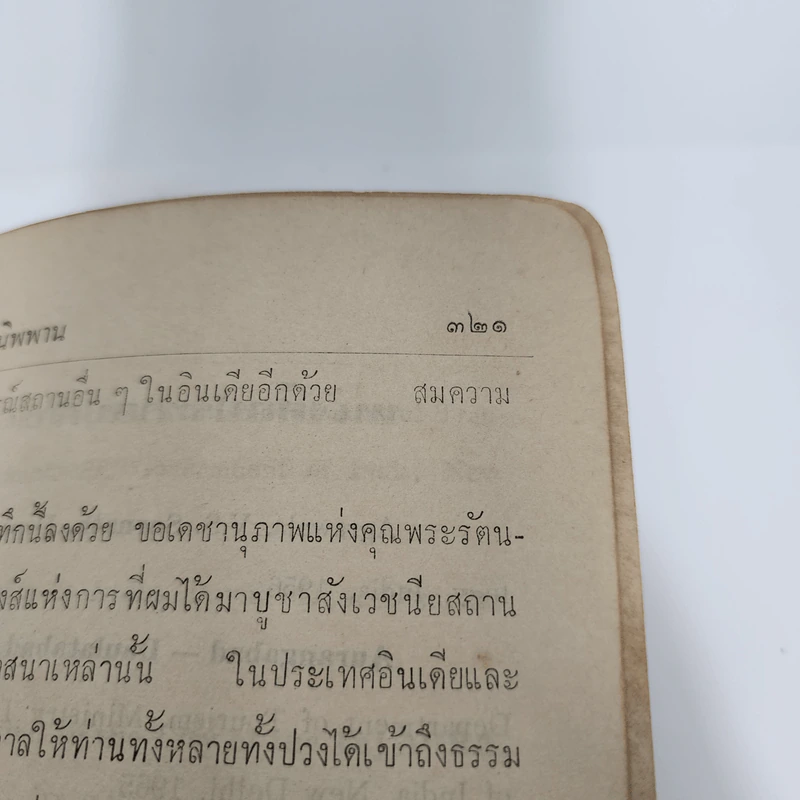 นิพพาน ๓๒๑
ณ์สถานอื่น ๆ ในอินเดียอีกด้วย สมความ
ทึกนี้ลงด้วย ขอเดชานุภาพแห่งคุณพระรัตน-
งส์แห่งการที่ผมได้มาบูชาสังเวชนียสถาน
สนาเหล่านั้น ในประเทศอินเดียและ
าลให้ท่านทั้งหลายทั้งปวงได้เข้าถึงธรรม